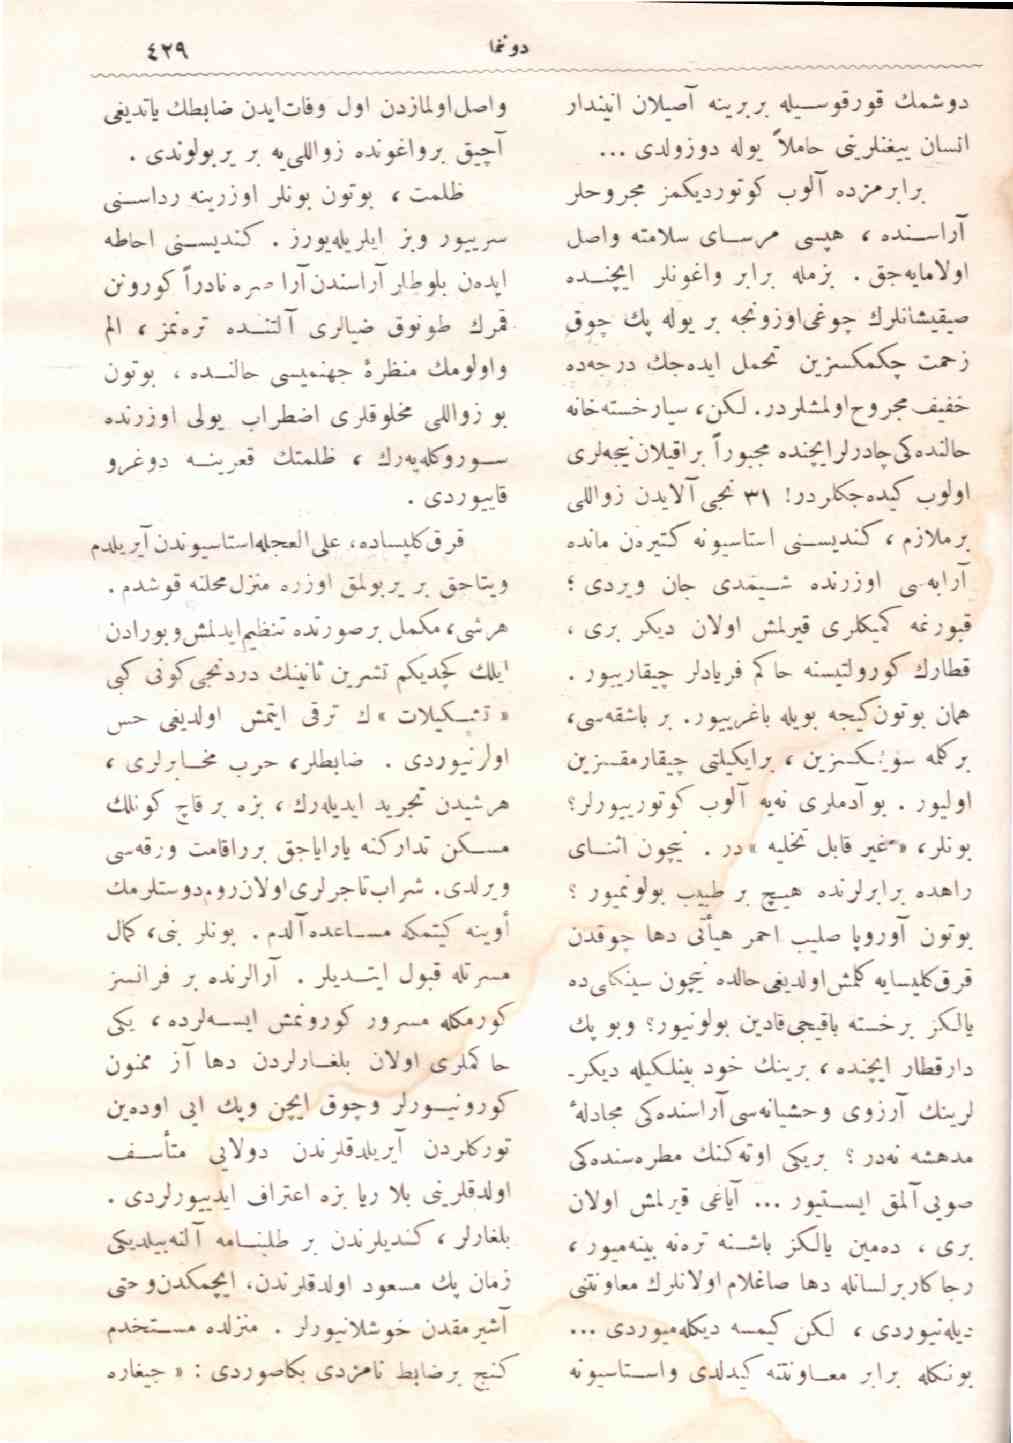 دوننما
٤٢٩
دوشمك قورقوسيله بربرينه آصيلان انيندار
انسان ييغنلريتى حاملاً يوله دوزولدى ...
برابرمزده آلوب كوتورديكمز مجروحلر
آراسنده ، هپسى مرساى سلامته واصل
اولامايه‌جق . بزمله برابر واغونلر ايچنده
صيقيشانلرك چوغى اوزونجه بر يوله پك چوق
زحمت چكمكسزين تحمل ايده‌جك درجه‌ده
خفيف مجروح اولمشلردر. لكن، سيار خسته‌خانه
حالنده‌كى چادرلر ايچنده مجبوراً براقيلان نيجه‌لرى
اولوب كيده‌جكلردر! ٣١ نجى آلايدن زواللى
برملازم ، كنديسنى استاسيونه كتيره‌ن مانده
آرابه‌سى اوزرنده شيمدى جان ويردى ؛
قبورغه كميكلرى قيرلمش اولان ديكر برى ،
قطارك كورولتيسنه حاكم فريادلر چيقاريبور .
همان بوتون كيجه بويله باغرييور. بر باشقه‌سى،
بركله سويلمكسزين ، برايكيلتى چيقارمقسزين
اوليور . بو آدملرى نه‌يه آلوب كوتورييورلر؟
بونلر، « غير قابل تخليه » در . نيچون اثناى
راهده برابرلرنده هيچ بر طبيب بولونميور ؟
بوتون آوروپا صليب احمر هيأتى دها چوقدن
قرق‌كليسايه كلمش اولديغى حالده نيچون سينكلى‌ده
يالكز بر خسته باقيجى قادين بولونيور؟ وبو پك
دارقطار ايچنده ، برينك خود بينلكيله ديكر-
لرينك آرزوى وحشيانه‌سى آراسنده‌كى مجادلهٔ
مدهشه نه‌در ؟ بريكى اوته‌كنك مطره‌سنده‌كى
صويى آلمق ايستيور ... آياغى قيرلمش اولان
برى ، ده‌مين يالكز باشنه ترنه بينه‌ميور ،
رجاكار برلسانله دها صاغلام اولانلرك معاونتنى
ديله‌نيوردى ، لكن كيمسه ديكله‌ميوردى ...
بونكله برابر معاونتنه كيدلدى واستاسيونه
واصل اولمازدن اول وفات ايدن ضابطك ياتديغى
آچيق برواغونده زواللى‌يه بر ير بولوندى .
ظلمت ، بوتون بونلر اوزرينه رداسنى
سرييور وبز ايلريله‌يورز . كنديسنى احاطه
ايده‌ن بلوطلر آراسندن آرا صره نادراً كورونن
قمرك طونوق ضيالرى آلتنده تره‌نمز ، الم
واولومك منظرهٔ جهنميسى حالنده ، بوتون
بو زواللى مخلوقلرى اضطراب يولى اوزرنده
سوروكله‌يه‌رك ، ظلمتك قعرينه دوغرو
قاييوردى .
قرق كليساده، على العجله استاسيوندن آيريلدم
وبتاجق بر ير بولمق اوزره منزل محلنه قوشدم .
هرشى، مكمل بر صورتده تنظيم ايدلمش وبورادن
ايلك كچديكم تشرين ثانينك دردنجى كونى كبى
« تشكيلات » ك ترقى ايتمش اولديغى حس
اولرنيوردى . ضابطلر، حرب مخابرلرى ،
هرشيدن تجريد ايديله‌رك ، بزه بر قاچ كونلك
مسكن تداركنه ياراياجق بر راقامت ورقه‌سى
ويرلدى. شراب تاجرلرى اولان روم دوستلرمك
أوينه كيتمكه مساعده آلدم . بونلر بنى، كمال
مسرتله قبول ايتديلر . آرالرنده بر فرانسز
كورمكله مسرور كورونمش ايسه‌لرده ، يكى
حاكملرى اولان بلغارلردن دها آز ممنون
كورونيورلر وچوق ايچن وپك ايى اوده‌ين
توركلردن آيريلدقلرندن دولايى متأسف
اولدقلرينى بلا ريا بزه اعتراف ايدييورلردى .
بلغارلر ، كنديلرندن بر طلبنامه آلنه‌بيلديكى
زمان پك مسعود اولدقلرندن، ايچمكدن وحتى
آشيرمقدن خوشلانيورلر . منزلده مستخدم
كنج برضابط نامزدى بكا صوردى : « جيغاره